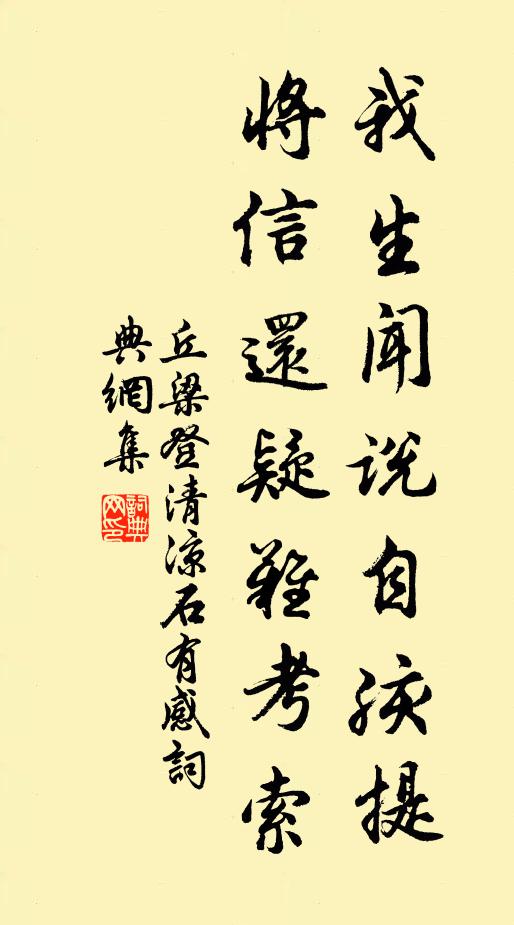 我生闻说自孩提
將信還疑難考索
丘梁登清凉石有感詞
典網集
詞典网印